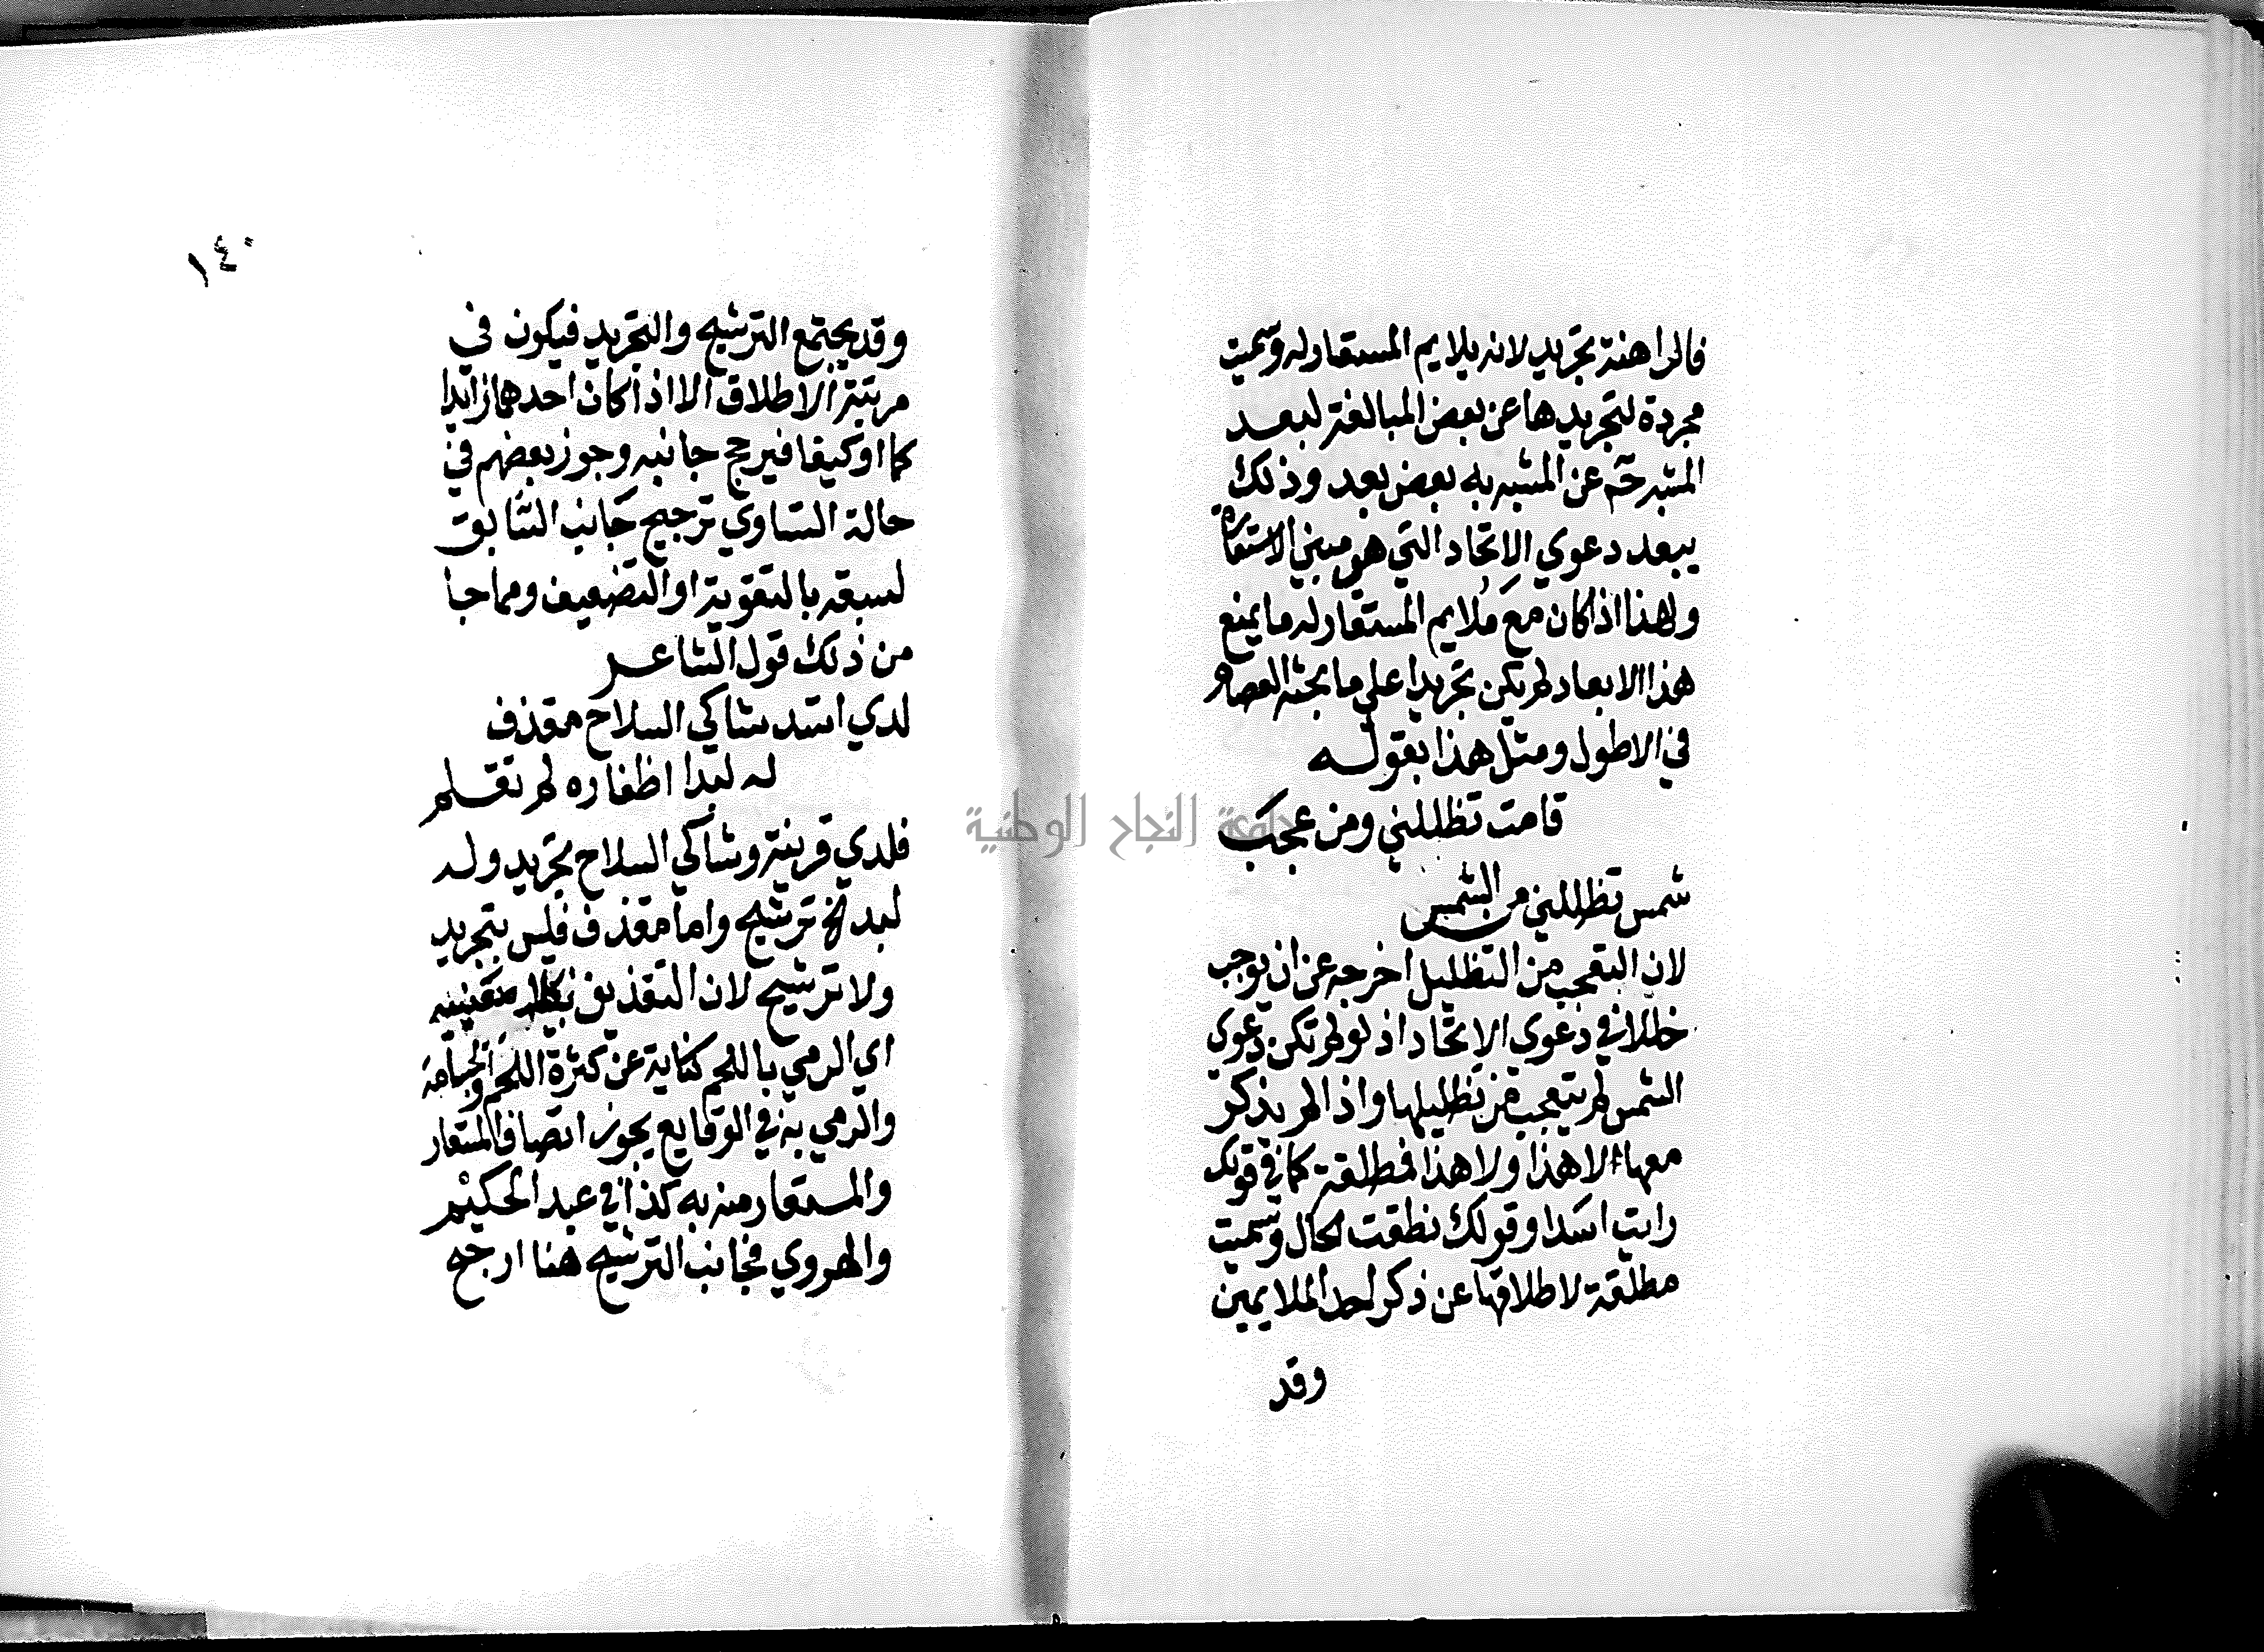 فالراهنة تجريد لانه يلايم المستعار له وسميت
مجردة لتجريدها عن بعض المبالغة لبعد
المشبه حتم عن المشبه به بعض بعد وذلك
يبعد دعوي الاتحاد التي هو مبني الاستعارة
ولهذا اذا كان مع ملايم المستعار له ما يمنع
هذا الابعاد لم يكن تجريدا علي ما بحثه العصام
في الاطول ومثل هذا بقوله
قامت تظللني ومن عجب
شمس تظللني من الشمس
لان التعجب من التظليل اخرجه عن ان يوجب
خللا في دعوي الاتحاد اذ لو لم تكن دعوي
الشمس لم يتعجب من تظليلها واذا لم يذكر
معها الا هذا ولا هذا فمطلقة كما في قولك
رايت اسدا وقولك نطقت الحال وسميت
مطلقة لاطلاقها عن ذكر احد الملايمين
وقد
١٤٠
وقد يجتمع الترشيح والتجريد فيكون في
مرتبة الاطلاق الا اذا كان احدهما زايدا
كما اوكيفا فيرجح جانبه وجوز بعضهم في
حالة التساوي ترجيح جانب السابق
لسبقه بالتقوية او التضعيف ومما جا
من ذلك قول الشاعر
لدي اسد شاكي السلاح مقذف
له لبدا اظفاره لم تقلم
فلدي قرينة وشاكي السلاح تجريد وله
لبد الخ ترشيح واما مقذف فليس بتجريد
ولا ترشيح لان التقذيف بكلا معنييه
اي الرمي باللحم كناية عن كثرة اللحم والجسامة
والرمي به في الوقايع يجوز اتصاف المستعار
والمستعار منه به كذا في عبد الحكيم
والهروي فجانب الترشيح هنا ارجح
جامعة النجاح الوطنية